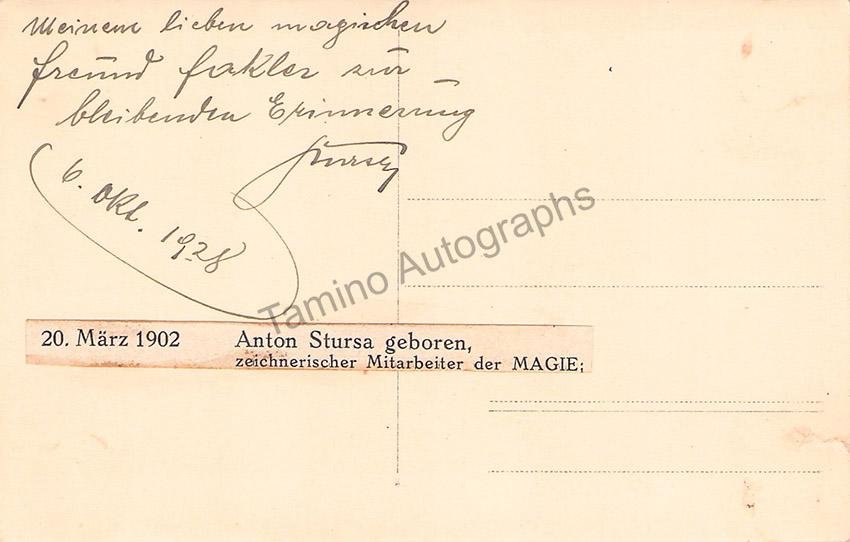 Meinem lieben magischen
Freund Fakler zur
bleibenden Erinnerung
Stursa
6. Okt. 1928
Tamino Autographs
20. März 1902 Anton Stursa geboren,
zeichnerischer Mitarbeiter der MAGIE;